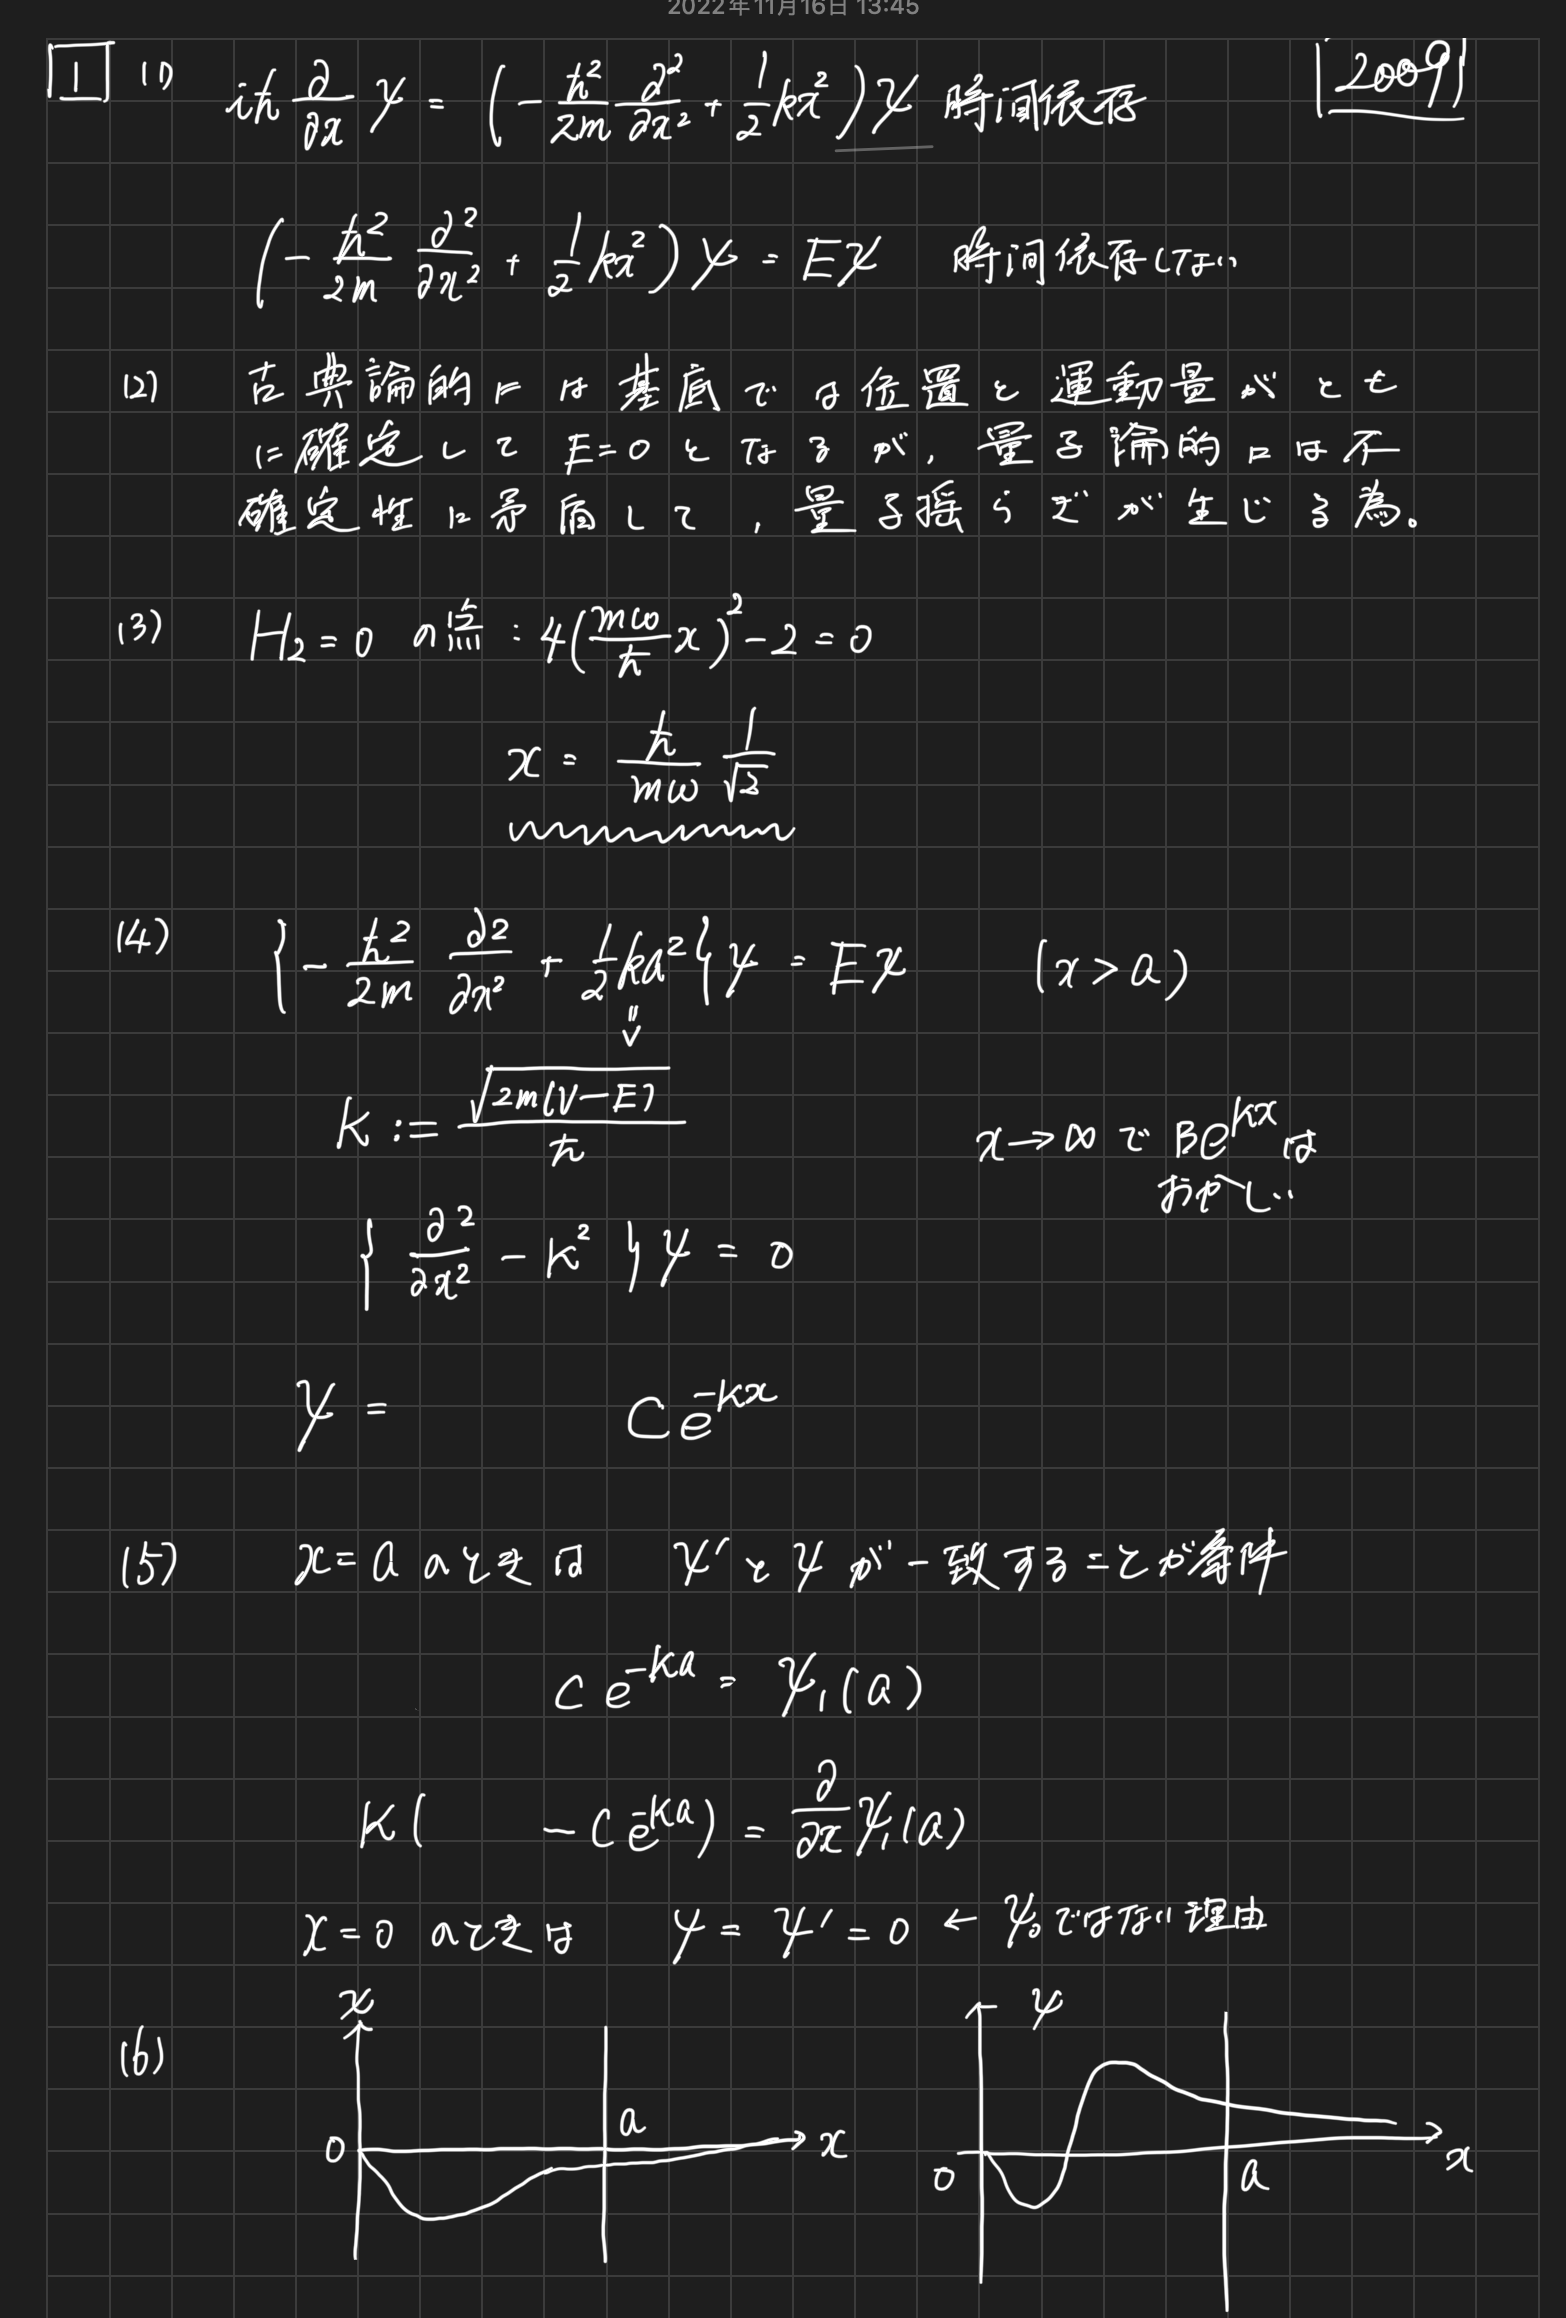 2022年11月16日 13:45
1 (1) iħ ∂/∂x ψ = (-ħ²/2m ∂²/∂x² + 1/2 kx²)ψ 時間依存 2009
(-ħ²/2m ∂²/∂x² + 1/2 kx²)ψ = Eψ 時間依存しない
(2) 古典論的には基底では位置と運動量がとも
に確定して E=0 となるが, 量子論的には不
確定性に矛盾して, 量子揺らぎが生じる為。
(3) H₂=0 の点 : 4(mω/ħ x)² - 2 = 0
x = ħ/mω 1/√2
(4) {-ħ²/2m ∂²/∂x² + 1/2 ka²}ψ = Eψ (x>a)
= V
K := √2m(V-E)/ħ
x→∞ で Be^{Kx} は
おかしい
{∂²/∂x² - K²}ψ = 0
ψ = Ce^{-Kx}
(5) x=a のときは ψ'とψが一致することが条件
Ce^{-Ka} = ψ₁(a)
K( -Ce^{-Ka}) = ∂/∂x ψ₁(a)
x=0 のときは ψ = ψ' = 0 ← ψ₀ではない理由
(6) x ψ
0 a x 0 a x